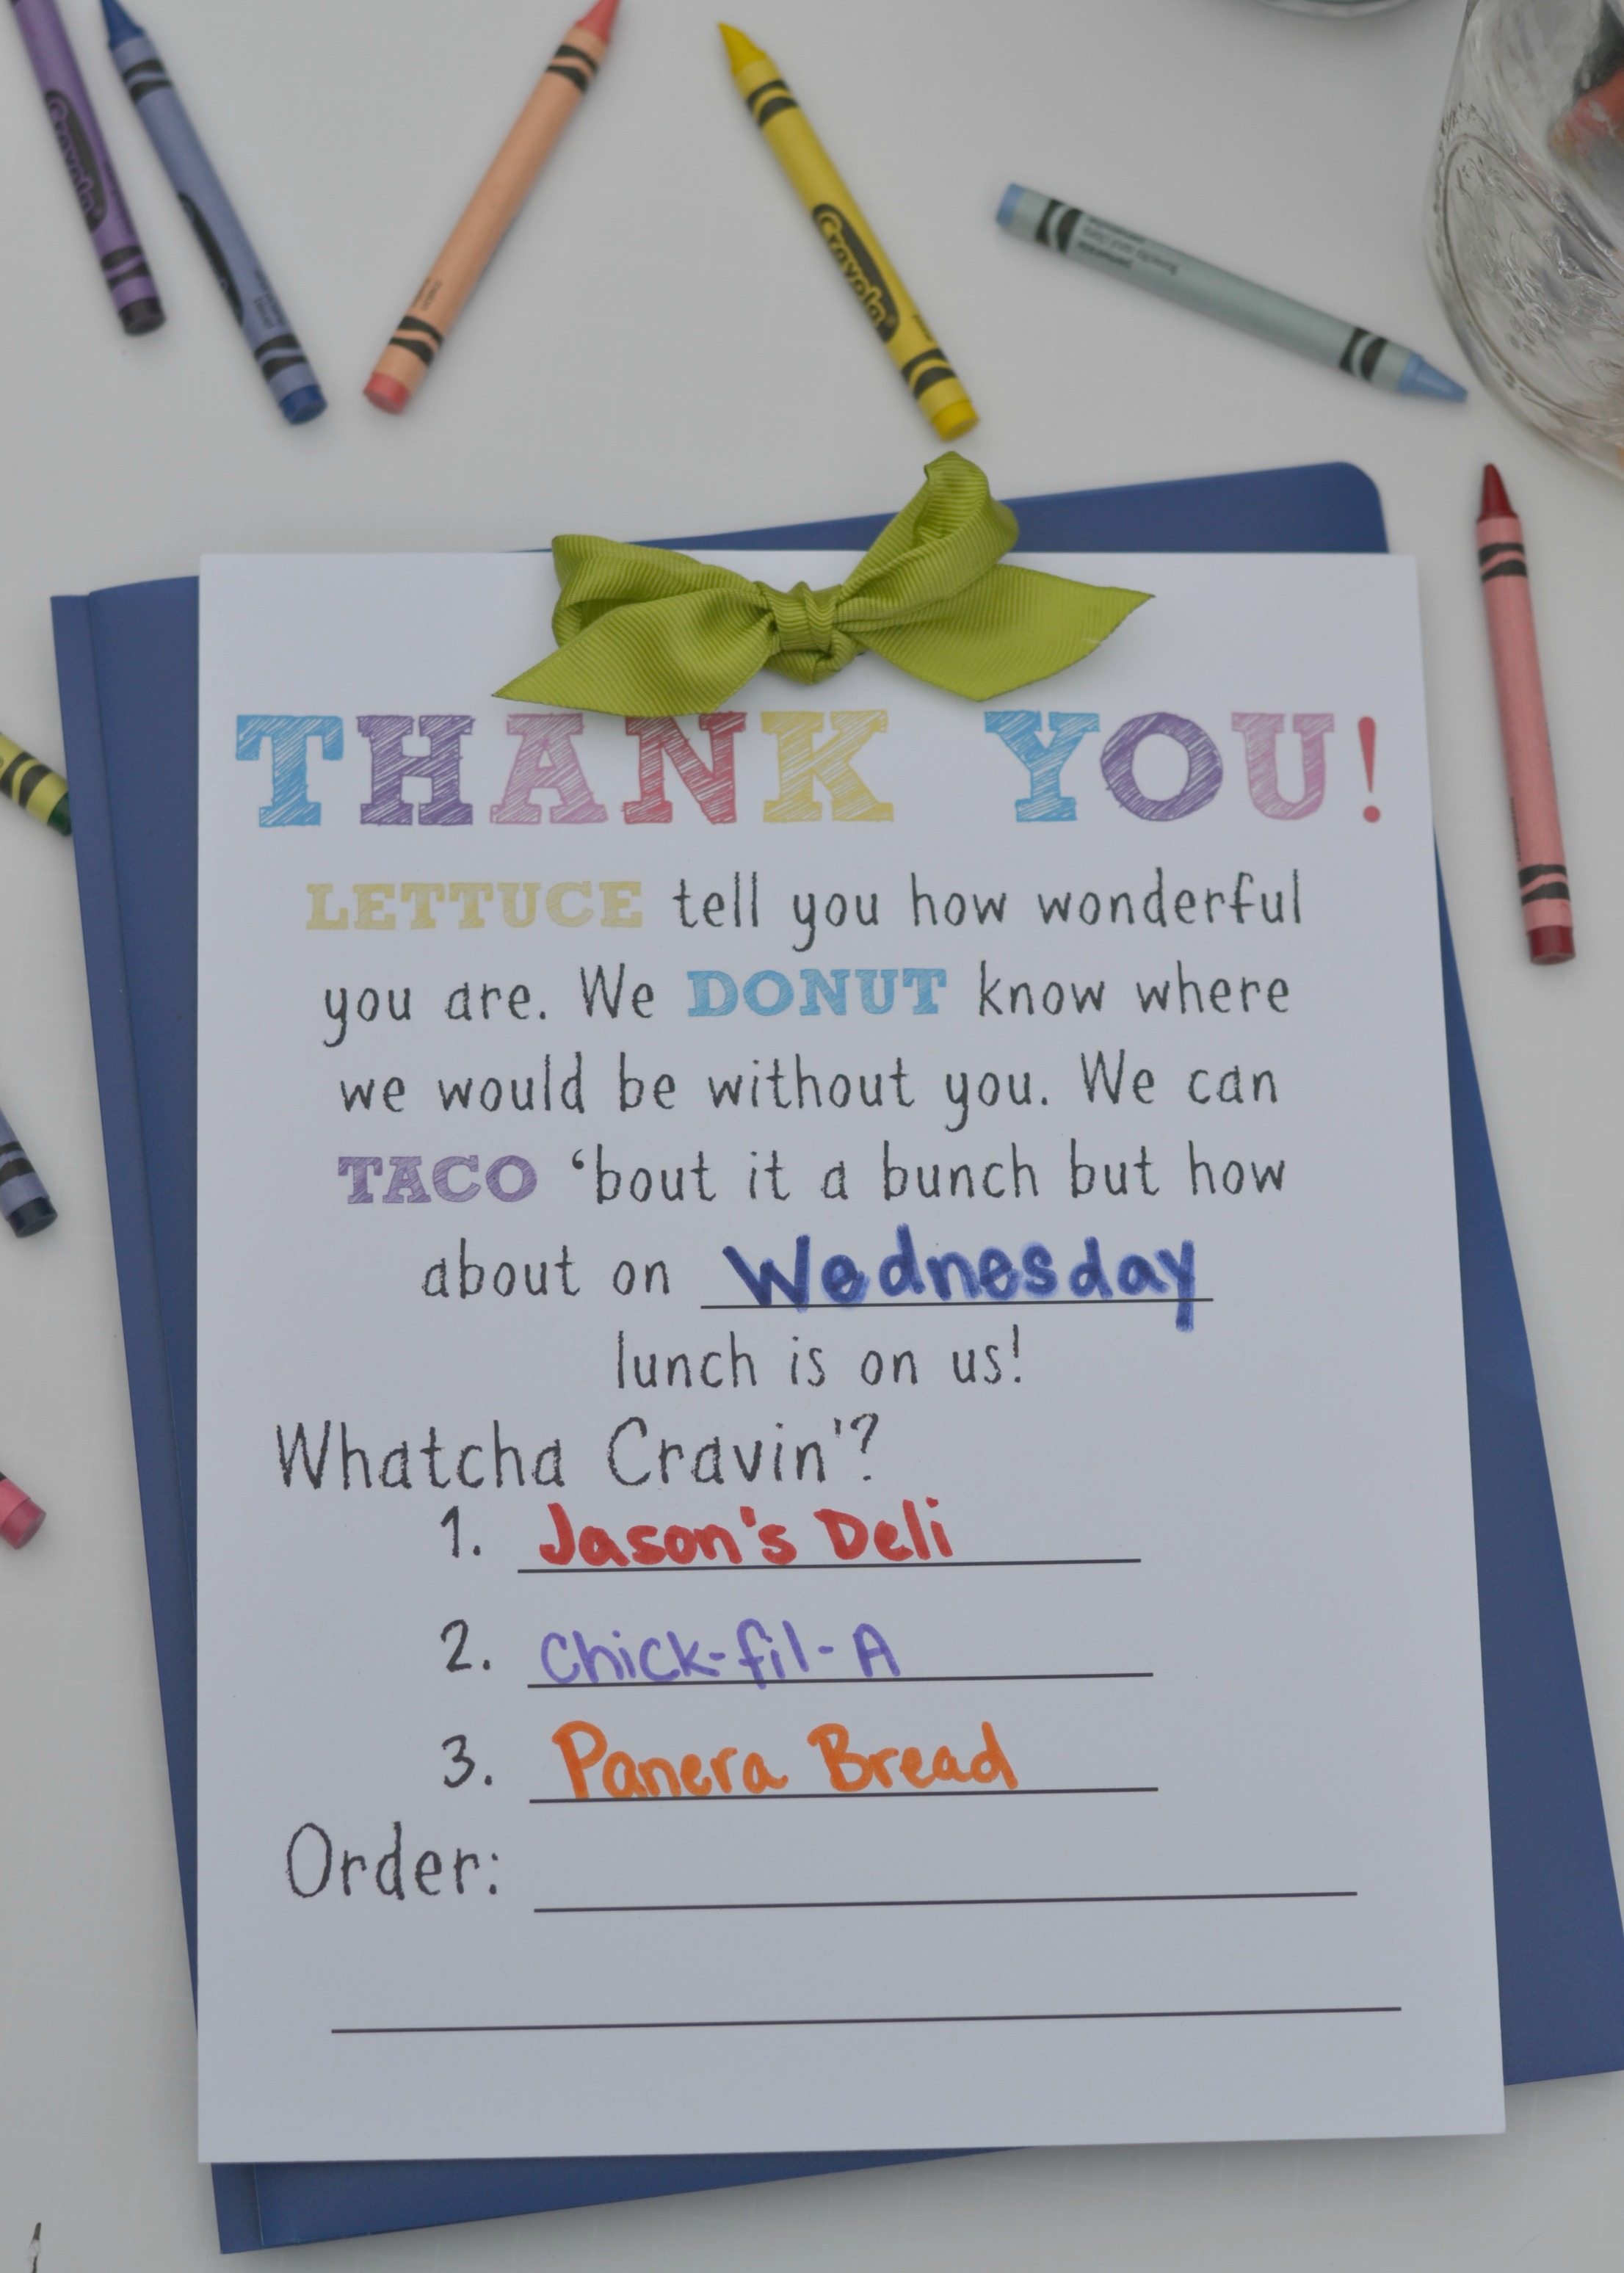 Crayola
Crayola
THANK YOU!
LETTUCE tell you how wonderful
you are. We DONUT know where
we would be without you. We can
TACO ‘bout it a bunch but how
about on Wednesday
lunch is on us!
Whatcha Cravin'?
1. Jason's Deli
2. Chick-fil-A
3. Panera Bread
Order: